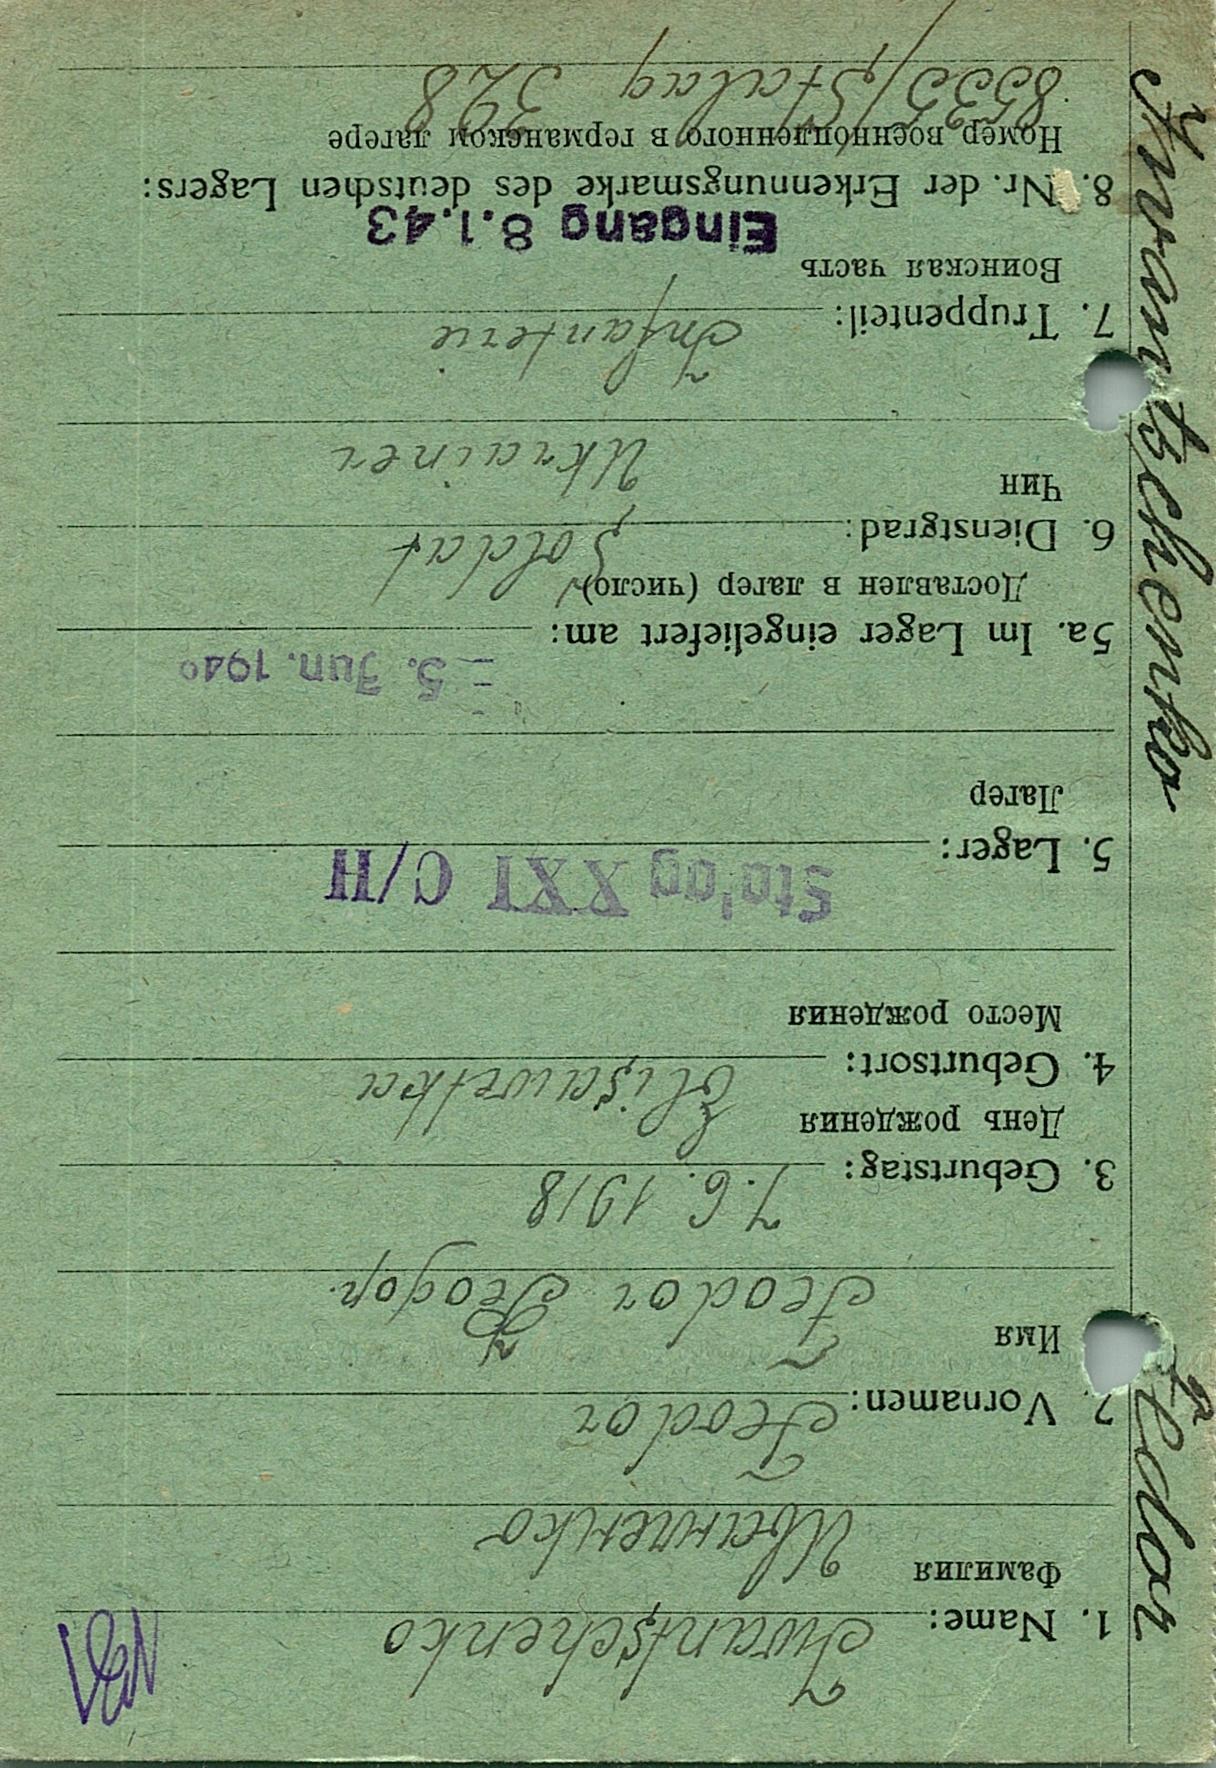 1. Name: Iwantschenko
Фамилия
Иванченко
2. Vornamen: Feodor
Имя
Feodor Феодор.
3. Geburtstag: 7.6.1918
День рождения
4. Geburtsort: Elisawetka
Место рождения
Stalag XXI C/H
5. Lager:
Лагер
= 5. Jun. 1940
5a. Im Lager eingeliefert am:
Доставлен в лагер (число)
6. Dienstgrad: Soldat
Чин
Ukrainer
7. Truppenteil: Infanterie
Воинская часть
Eingang 8.1.43
8. Nr. der Erkennungsmarke des deutschen Lagers:
Номер военнопленного в германском лагере
8535/Stalag 328
Iwantschenko Fedor